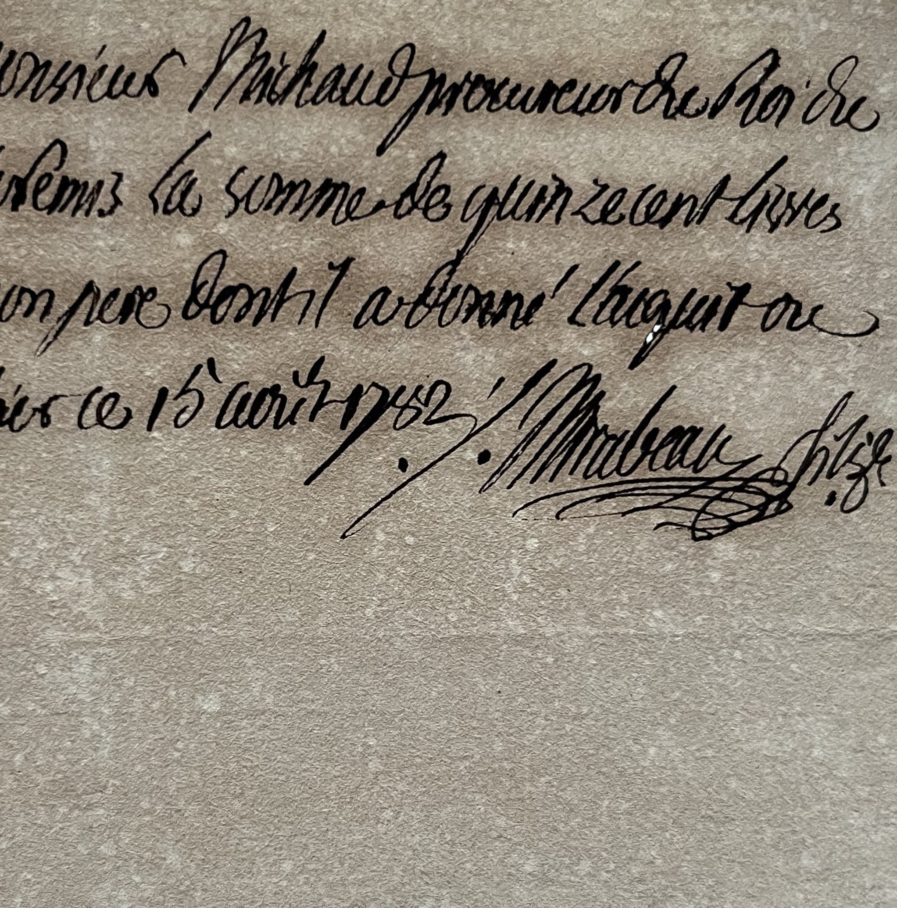 onsieur Michaud procureur du Roi du
remis la somme de quinze cent livres
on pere dont il a donné l'acquit
ce 15 aoûit 1782 Mirabeau fils